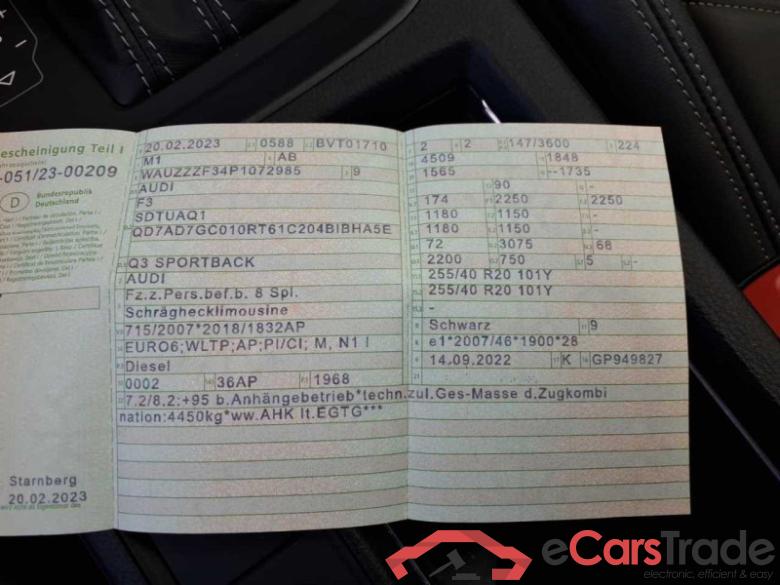 escheinigung Teil I
-051/23-00209
D
Bundesrepublik
Deutschland
Starnberg
20.02.2023
20.02.2023 0588 BVT01710
M1 AB
WAUZZZF34P1072985 9
AUDI
F3
SDTUAQ1
QD7AD7GC010RT61C204BIBHA5E
Q3 SPORTBACK
AUDI
Fz.z.Pers.bef.b. 8 Spl.
Schräghecklimousine
715/2007*2018/1832AP
EURO6;WLTP;AP;PI/CI; M, N1 I
Diesel
0002 36AP 1968
7.2/8.2:+95 b.Anhängebetrieb*techn.zul.Ges-Masse d.Zugkombi
nation:4450kg*ww.AHK lt.EGTG***
2 2 147/3600 224
4509 1848
1565 --1735
90 -
174 2250 2250
1180 1150 -
1180 1150 -
72 3075 68
2200 750 5 -
255/40 R20 101Y
255/40 R20 101Y
-
Schwarz 9
e1*2007/46*1900*28
14.09.2022 K GP949827
eCarsTrade
electronic, efficient & easy